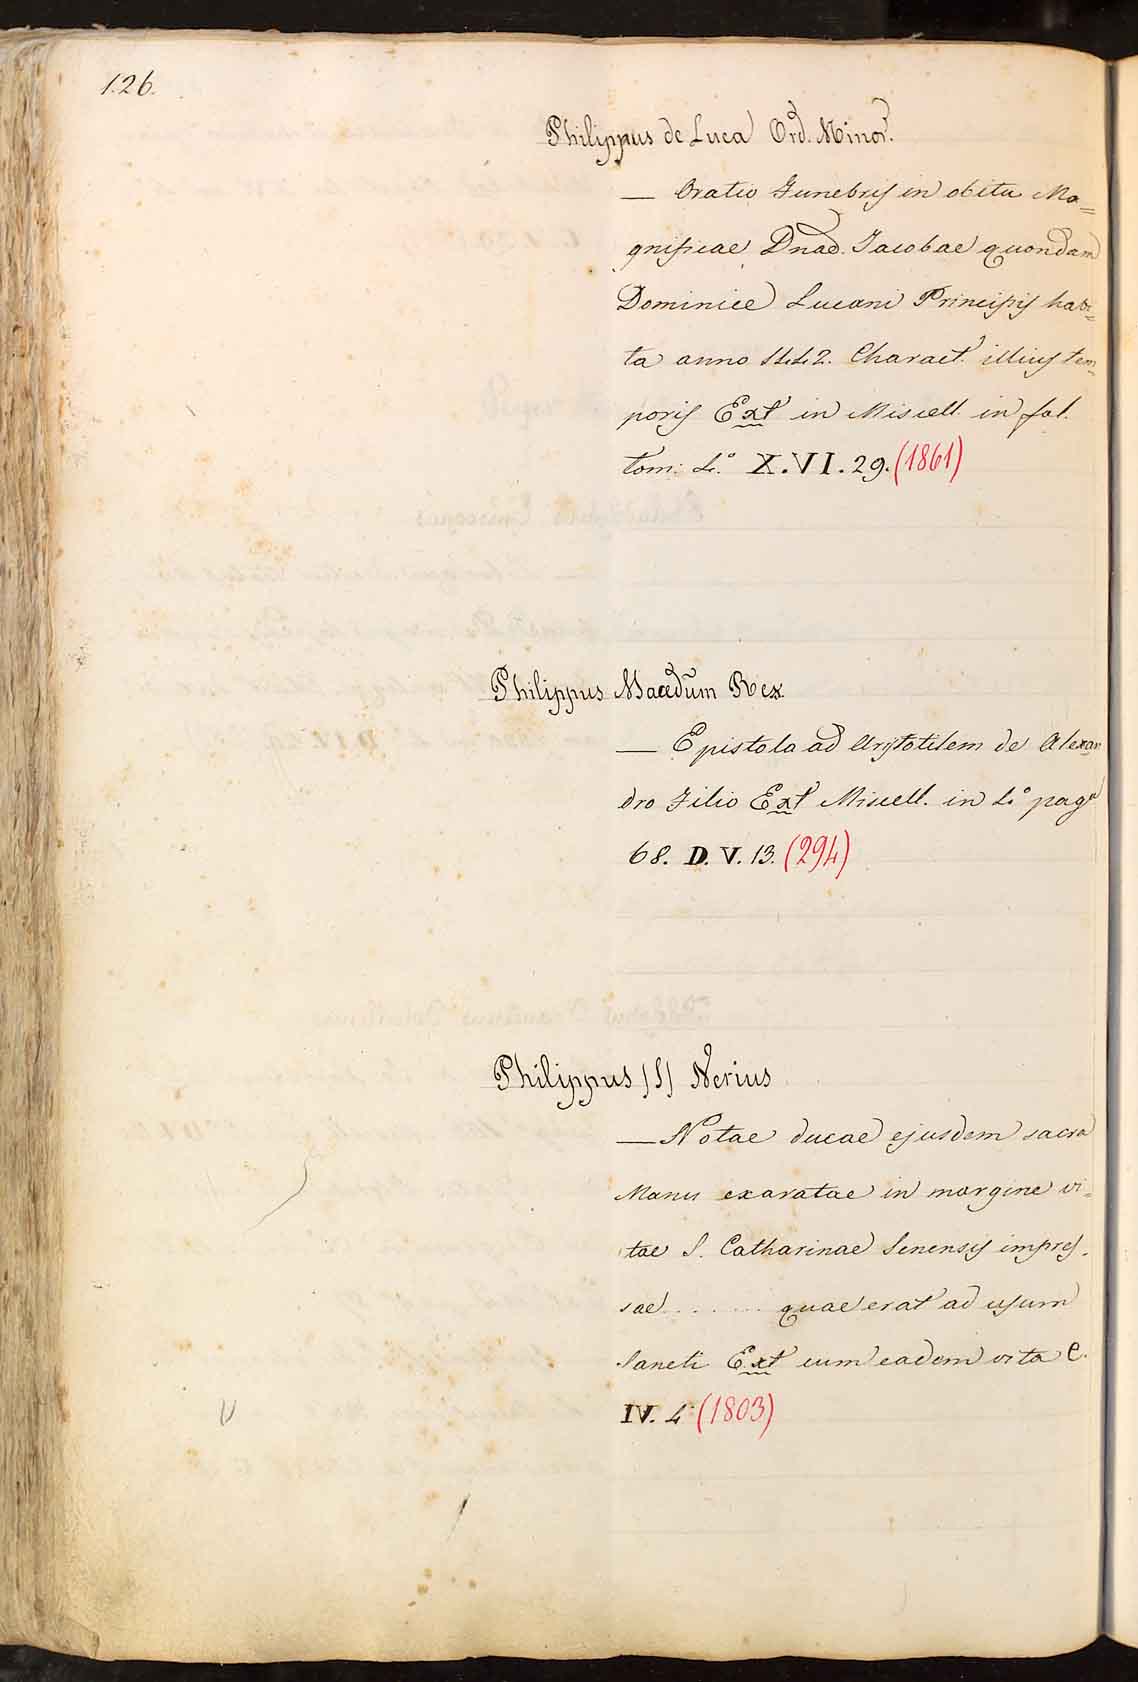 126.
Philippus de Luca Ord. Minor.
— Oratio Funebris in obitu Ma=
gnificae Dnae. Jacobae quondam
Dominici Lucani Principis habi=
ta anno 1442. Charact. illius tem=
poris Ext in Miscell. in fol.
tom. 4.° X.VI.29. (1861)
Philippus Macedum Rex.
— Epistola ad Aristotilem de Alexan
dro Filio Ext Miscell. in 4.° pag.a
68. D. V. 13. (294)
Philippus /S/ Nerius
— Notae ducae ejusdem sacra
Manu exaratae in margine vi=
tae S. Catharinae Senensis impres.
sae . . . . . . quae erat ad usum
Sancti Ext cum eadem vita C.
IV. 4. (1803)